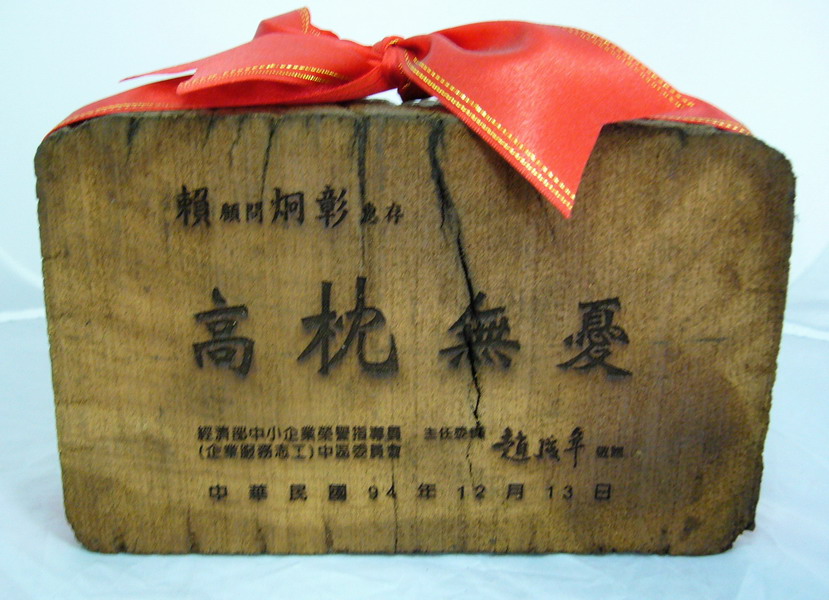 賴顧問炯彰惠存
高枕無憂
經濟部中小企業榮譽指導員 主任委員
(企業服務志工)中區委員會 趙 敬贈
中華民國94年12月13日